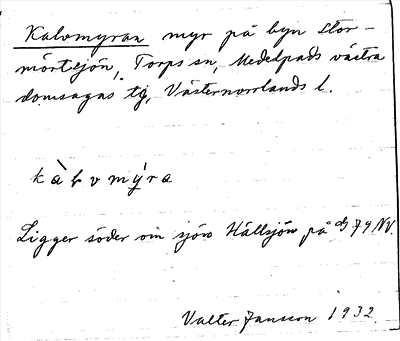 Kalvmyran myr på byn Stor-
mörtsjön, Torps sn, Medelpads västra
domsagas tg, Västernorrlands l.
kàlvmýra
Ligger söder om sjön Hällsjön på 79 NV.
Valter Jansson 1932.